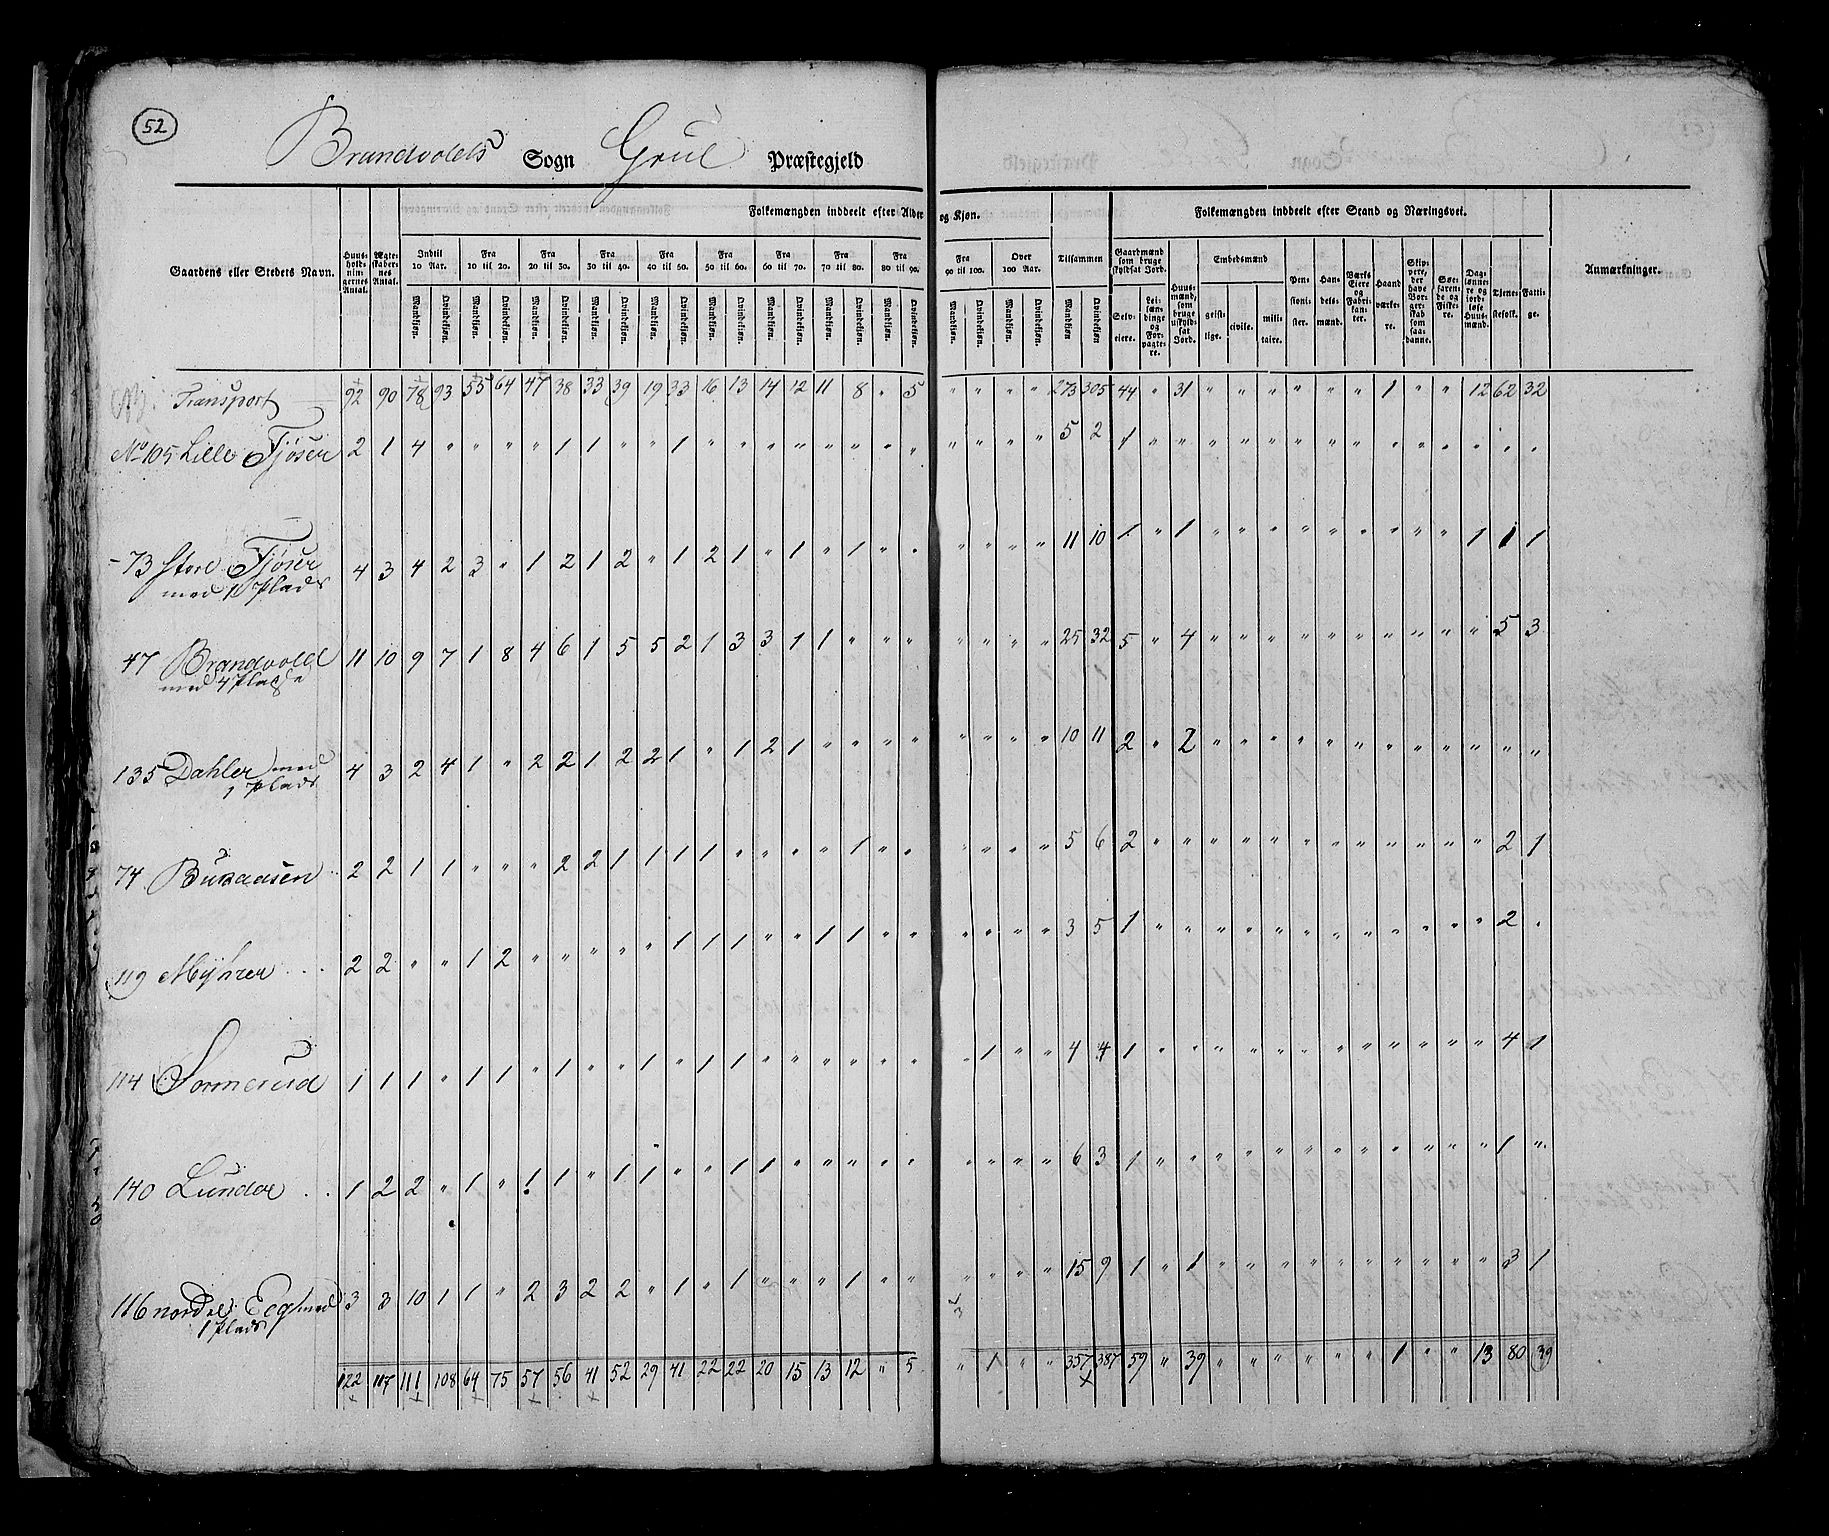 52
Brandvolds Sogn Grue Præstegjeld
Folkemængden inddeelt efter Alder og Kjøn. Folkemængden inddeelt efter Stand og Næringsvei.
Gaardens eller Stedets Navn. Huusholdningernes Antal. Ægteskabernes Antal. Indtil 10 Aar. Fra 10 til 20. Fra 20 til 30. Fra 30 til 40. Fra 40 til 50. Fra 50 til 60. Fra 60 til 70. Fra 70 til 80. Fra 80 til 90. Fra 90 til 100. Over 100 Aar. Tilsammen Gaardmænd som bruge skyldsat Jord. Huusmænd, som bruge uskyldsat Jord. Embedsmænd Pensionister. Handelsmænd. Værks Eiere og Fabrikanter. Haandværkere. Skippere, der have Borgerskab som saadanne. Søefarende og Fiskere. Daglønnere og jordløse Huusmænd. Tjenestefolk. Fattige. Anmærkninger.
Mandkjøn. Qvindekjøn. Mandkjøn. Qvindekjøn. Mandkjøn. Qvindekjøn. Mandkjøn. Qvindekjøn. Mandkjøn. Qvindekjøn. Mandkjøn. Qvindekjøn. Mandkjøn. Qvindekjøn. Mandkjøn. Qvindekjøn. Mandkjøn. Qvindekjøn. Mandkjøn. Qvindekjøn. Mandkjøn. Qvindekjøn. Mandkjøn Qvindekjøn Selveiere. Leilændinge og Forpagtere. geistlige. civile. militaire.
Transport 92 90 78 93 55 64 47 38 33 39 19 33 16 13 14 12 11 8 " 5 " " " " 273 305 44 " 31 " " " " " " 1 " " 12 62 32
No 105 Lille Tjøser 2 1 4 " " " " 1 1 " " 1 " " " " " " " " " " " " 5 2 1 " " " " " " " " " " " " " "
- 73 Store Tjøser 4 3 4 2 3 " 1 2 1 2 " 1 2 1 " 1 " 1 " " " " " " 11 10 1 " 1 " " " " " " " " " 1 1 1
med 1 Plads
47 Brandvold 11 10 9 7 1 8 4 6 1 5 5 2 1 3 3 1 1 " " " " " " " 25 32 5 " 4 " " " " " " " " " " 5 3
med 4 Pladse
135 Dahler med 4 3 2 4 1 " 2 2 1 2 2 1 " 1 2 1 " " " " " " " " 10 11 2 " 2 " " " " " " " " " " " "
1 Plads
74 Buraasen 2 2 1 1 " " " 2 2 1 1 1 1 " " " " 1 " " " " " " 5 6 2 " " " " " " " " " " " " 2 1
119 Myhrer 2 2 " " 1 2 " " " " " 1 1 1 " " 1 1 " " " " " " 3 5 1 " " " " " " " " " " " " 2 "
114 Sormerud 1 1 1 " 1 1 " 1 " " 1 " 1 1 " " " " " " " 1 " " 4 4 1 " " " " " " " " " " " " 4 1
140 Lundøe 1 2 2 " 1 " 1 1 " 1 1 " " 1 1 " " " " " " " " " 6 3 1 " " " " " " " " " " " " 1 "
116 nordre Eeg med 3 3 10 1 1 " 2 3 2 2 " 1 " 1 " " " 1 " " " " " " 15 9 1 " 1 " " " " " " " " " " 3 1
1 Plads
122 117 111 108 64 75 57 56 41 52 29 41 22 22 20 15 13 12 " 5 " 1 " " 357 387 59 " 39 " " " " " " 1 " " 13 80 39